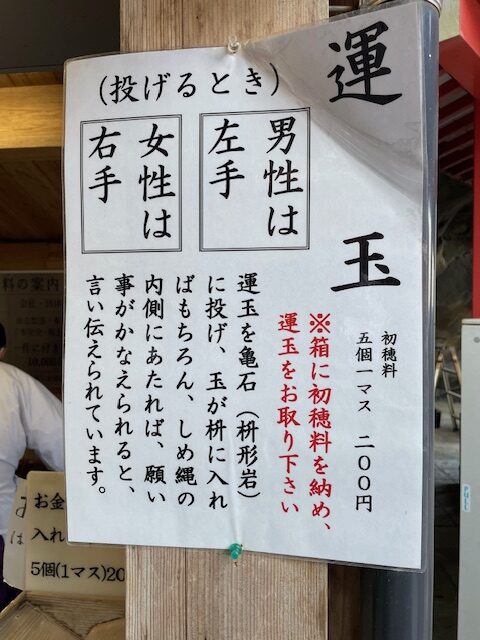 運玉
初穂料
五個一マス 二〇〇円
※箱に初穂料を納め、
運玉をお取り下さい
(投げるとき)
男性は
左手
女性は
右手
運玉を亀石(枡形岩)
に投げ、玉が枡に入れ
ばもちろん、しめ縄の
内側にあたれば、願い
事がかなえられると、
言い伝えられています。
料の案内
お金
入れ
5個(1マス)20
PULL